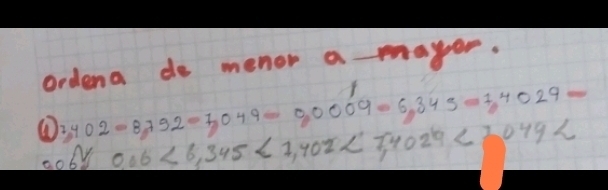 Ordena de menor a mayor.
1) 7,402 - 8,792 - 7,049 - 0,0009 - 6,345 - 7,4029 -
0,06 < 6,345 < 7,402 < 7,4029 < 7,049 <